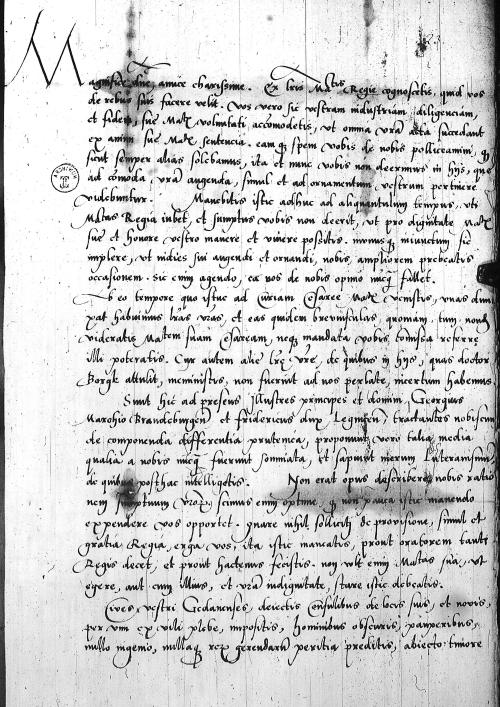 Magnifice dne, amice charissime. Ex lris Mtis Regie cognoscetis, quid vos
de rebus suis facere velit. Vos vero sic vestram industriam, diligenciam,
et fidem, sue Mati voluntati accomodetis, ut omnia vra ista succedant
ex animi sue Matis sentencia. eamque spem vobis de nobis polliceamini, quod
sicut semper alias solebamus, ita et nunc vobis non deerimus in hijs, que
ad comoda, vram augenda, simul et ad ornamentum vestrum pertinere
videbuntur. Manebitis istic adhuc ad aliquantulum tempus, uti
Mtas Regia iubet, et sumptus vobis non deerit, ut pro dignitate Matis
sue et honore vestro manere et vivere possitis. munusque iniunctum sic
implere, ut indies sui augendi et ornandi, nobis, ampliorem prebeatis
occasionem. Sic enim agendo, ea vos de nobis opinio nuncque fallet.
Ab eo tempore quo istuc ad curiam Cesaree Matis venistis, unas dum
xat habuimus lras vras, et eas quidem breviusculas, quoniam, tum nondum
videratis Matem suam Cesaream, neque mandata vobis comissa referre
illi poteratis. Cur autem alie lre vre, de quibus in hijs, quas doctor
Borgk attulit, meministis, non fuerint ad nos perlate, incertum habemus.
Sunt hic ad presens Illustres principes et domini, Georgius
Marchio Brandeburgen et fridericus dux Legnicen, tractantes nobiscum
de componenda differentia prutenica, proponunt vero talia media
qualia a nobis nuncque fuerunt somniata, et sapiunt merum Luteranismum
de quibus posthac intelligetis. Non erat opus describere nobis ratio
nem sumptuum vrorum, scimus enim optime, quod non pauca istic manendo
expendere vos oportet. quare nihil solliciti de provisione, simul et
gratia Regia, erga vos, ita istic maneatis, prout oratorem tanti
Regis decet, et prout hactenus fecistis. non vult enim Mtas sua, ut
egere, aut cum illius, et vra indignitate, stare istic debeatis.
Cives, vestri Gedanenses, deiectis Consulibus de locis suis, et novis,
per vim ex vili plebe, impositis, hominibus obscuris, pauperibus,
nullo ingenio, nullaque rerum gerendarum peritia preditis, abiecto timore